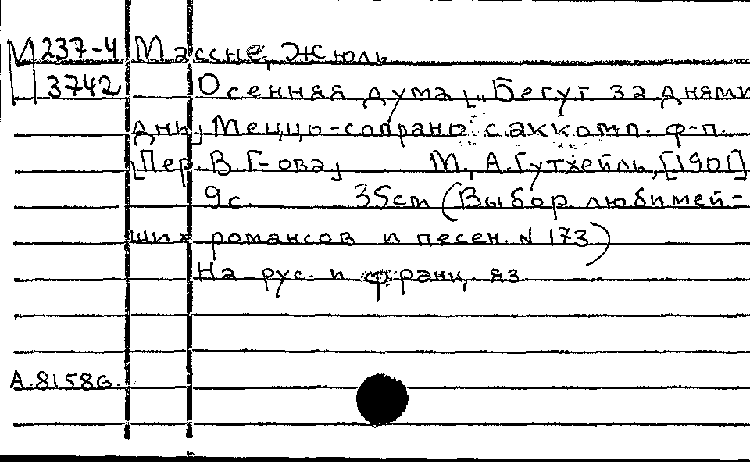 М 237-4 Массне, Жюль
3742 Осенняя дума „Бегут за днями
дни“ Меццо-сопрано с аккомп. ф-п.
[Пер. В. Г-ова] М, А. Гутхейль, [1901]
9с 35cm (Выбор любимей-
ших романсов и песен. N 173)
На рус. и франц. яз
A.8158G.